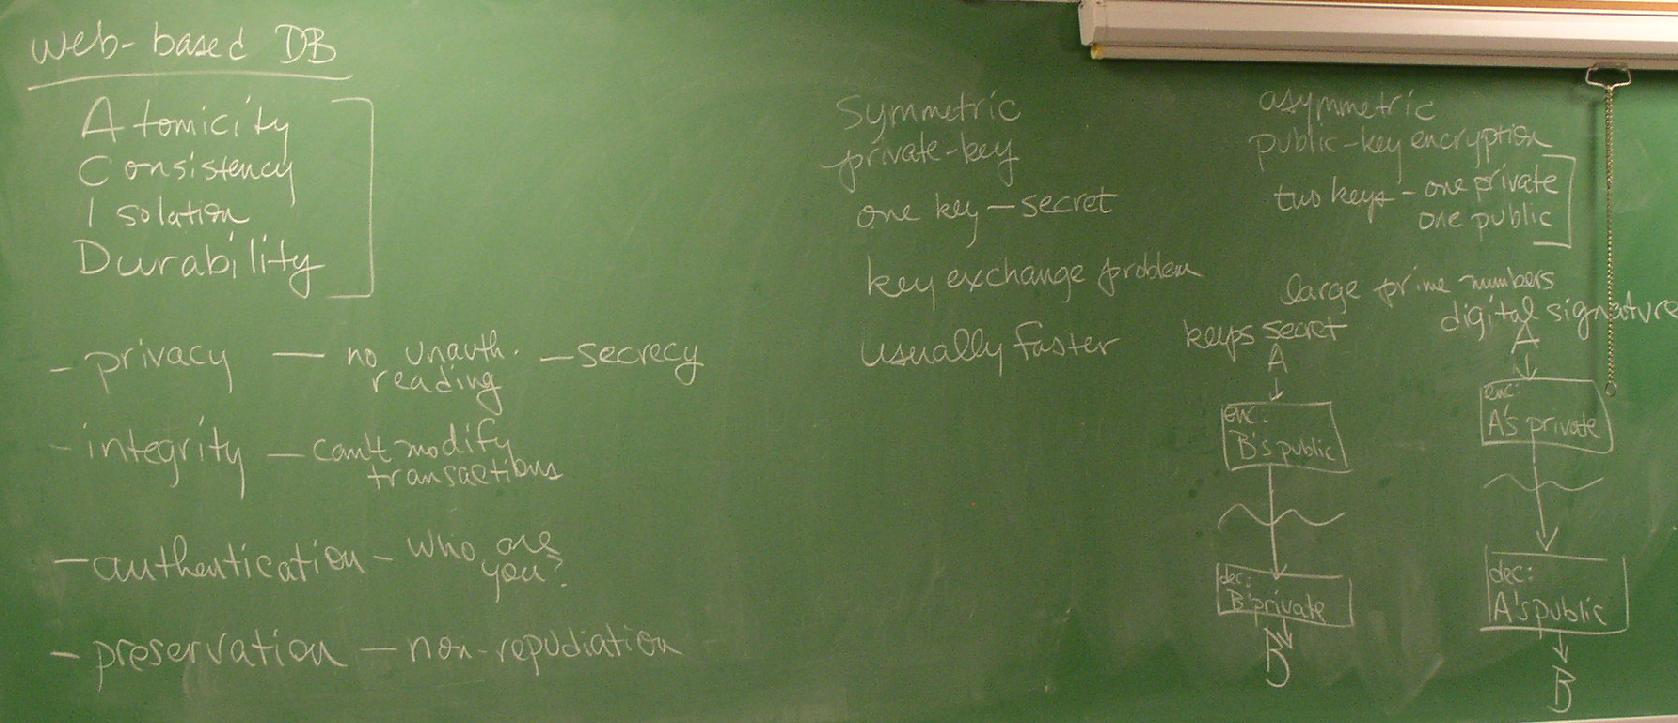 web-based DB
Atomicity
Consistency
Isolation
Durability
- privacy — no unauth. — secrecy
reading
- integrity — can't modify
transactions
- authentication - who are
you?
- preservation — non-repudiation
Symmetric
private-key
one key - secret
key exchange problem
usually faster
asymmetric
public-key encryption
two keys - one private
one public
large prime numbers
keys secret
A
enc:
B's public
dec:
B'private
B
digital signature
A
enc:
A's private
dec:
A's public
B